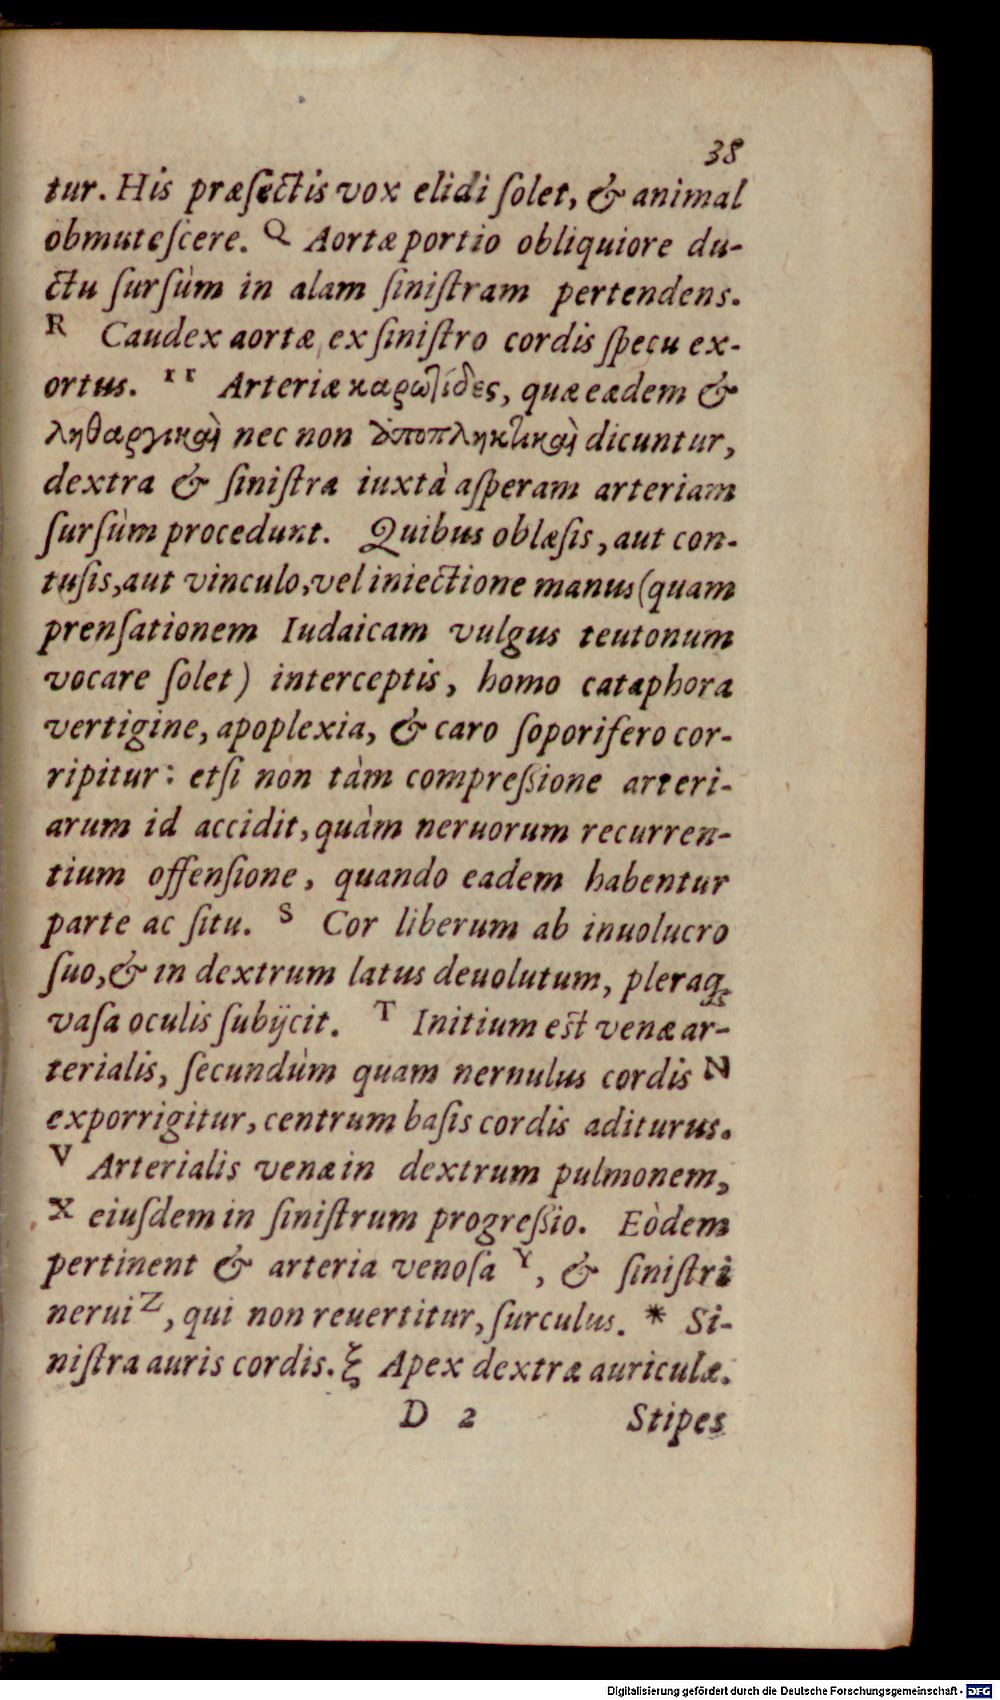 38
tur. His præſectis vox elidi ſolet, & animal
obmuteſcere. Q Aortæ portio obliquiore du-
ctu ſurſùm in alam ſiniſtram pertendens.
R Caudex aortæ ex ſiniſtro cordis ſpecu ex-
ortus. r r Arteriæ καρωτίδες, quæ eædem &
ληθαργικαὶ nec non ἀποπληκτικαὶ dicuntur,
dextra & ſiniſtra iuxtà aſperam arteriam
ſurſùm procedunt. Quibus oblæſis, aut con-
tuſis, aut vinculo, vel iniectione manus (quam
prenſationem Iudaicam vulgus teutonum
vocare ſolet) interceptis, homo cataphora
vertigine, apoplexia, & caro ſoporifero cor-
ripitur: etſi non tàm compreſsione arteri-
arum id accidit, quàm neruorum recurren-
tium offenſione, quando eadem habentur
parte ac ſitu. S Cor liberum ab inuolucro
ſuo, & in dextrum latus deuolutum, pleraq́;
vaſa oculis ſubijcit. T Initium est venæ ar-
terialis, ſecundùm quam nernulus cordis N
exporrigitur, centrum baſis cordis aditurus.
V Arterialis venæ in dextrum pulmonem,
X eiuſdem in ſiniſtrum progreſsio. Eòdem
pertinent & arteria venoſa Y, & ſiniſtri
nerui Z, qui non reuertitur, ſurculus. * Si-
niſtra auris cordis. ξ Apex dextræ auriculæ.
D 2 Stipes
Digitalisierung gefördert durch die Deutsche Forschungsgemeinschaft - DFG